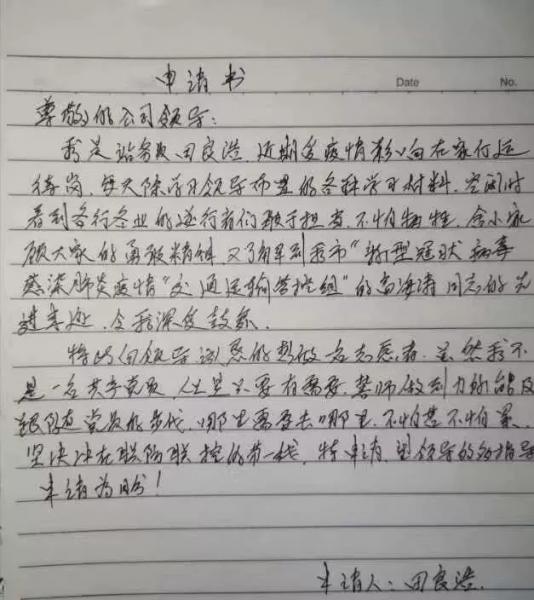 申请书
Date No.
尊敬的公司领导：
我是站务员田良浩，近期受疫情影响在家待
待岗，每天除学习领导布置的各种学习材料，空闲时
看到各行各业的逆行者们敢于担当，不怕牺牲，舍小家
顾大家的勇敢精神，又了解到我市“新型冠状病毒
感染肺炎疫情”交通运输管控组”的高海涛同志的先
进事迹，令我深受鼓舞。
特此向领导试愿的想做一名志愿者，虽然我不
是一名共产党员，但只要有需要，誓师做到力所能及
跟随党员的步伐，哪里需要去哪里，不怕苦不怕累，
坚决冲在联防联控的第一线，特申请，望领导的指导
申请为盼！
申请人：田良浩